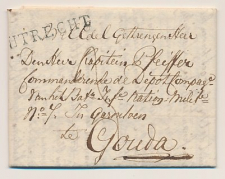 UTRECHT
Edel Gestrengen Heer
Den Heer Kapitein Pfeiffer
Commanderende de Depot Comp
van het Bat. Inf. Nation. Mil.
No. 7. In Garnisoen
te
Gouda.